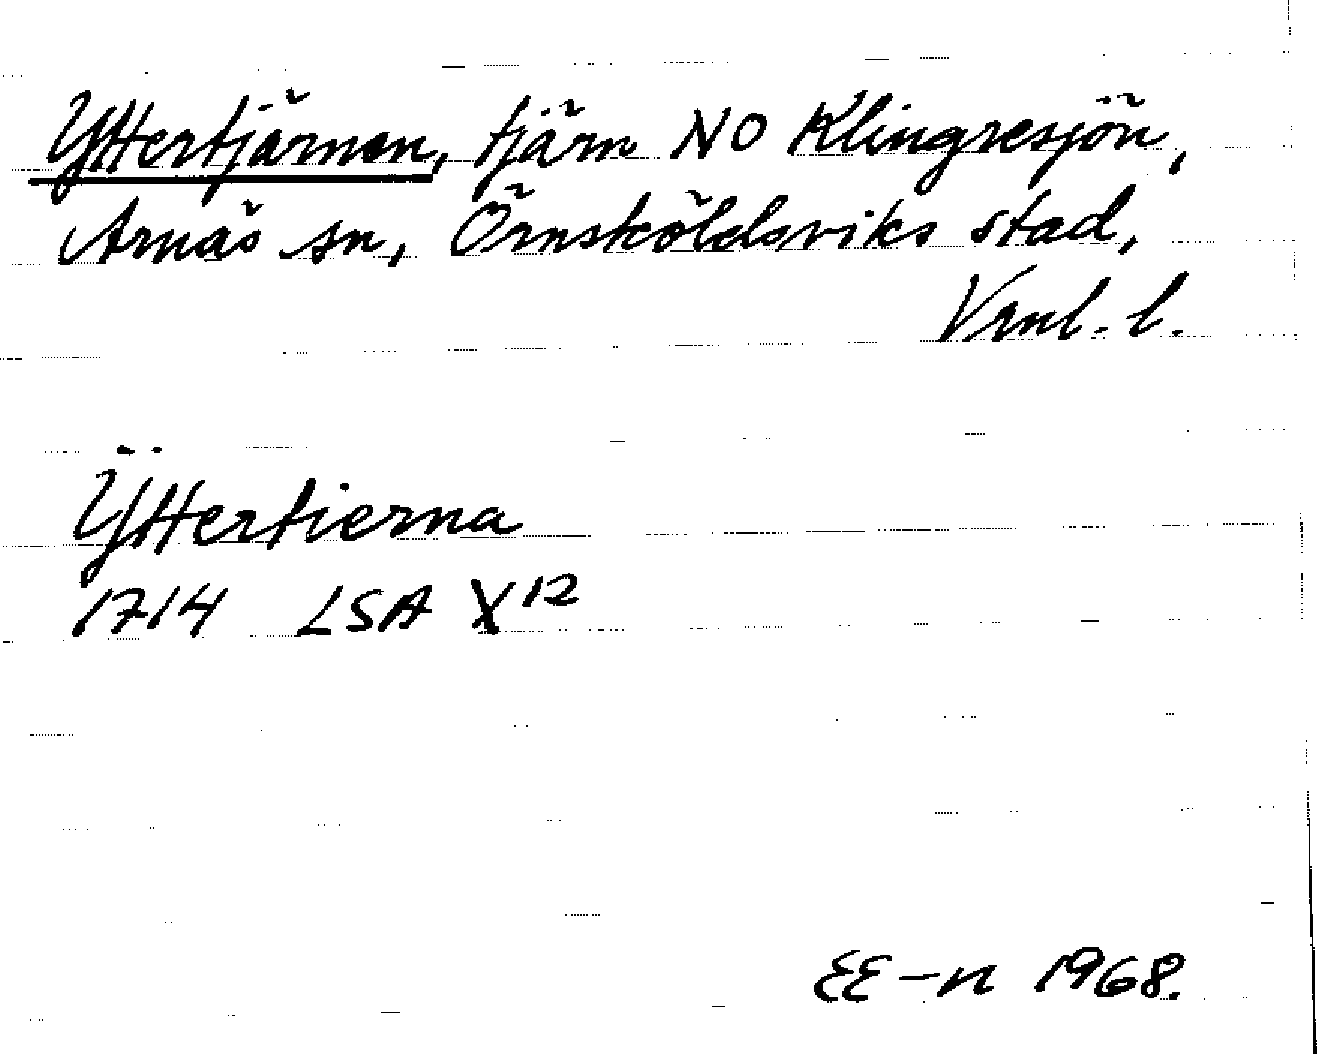 Yttertjärnen, tjärn NO Klingresjön,
Arnäs sn, Örnsköldsviks stad,
Vrnl. l.
Ÿttertierna
1714 LSA X12
EE-n 1968.